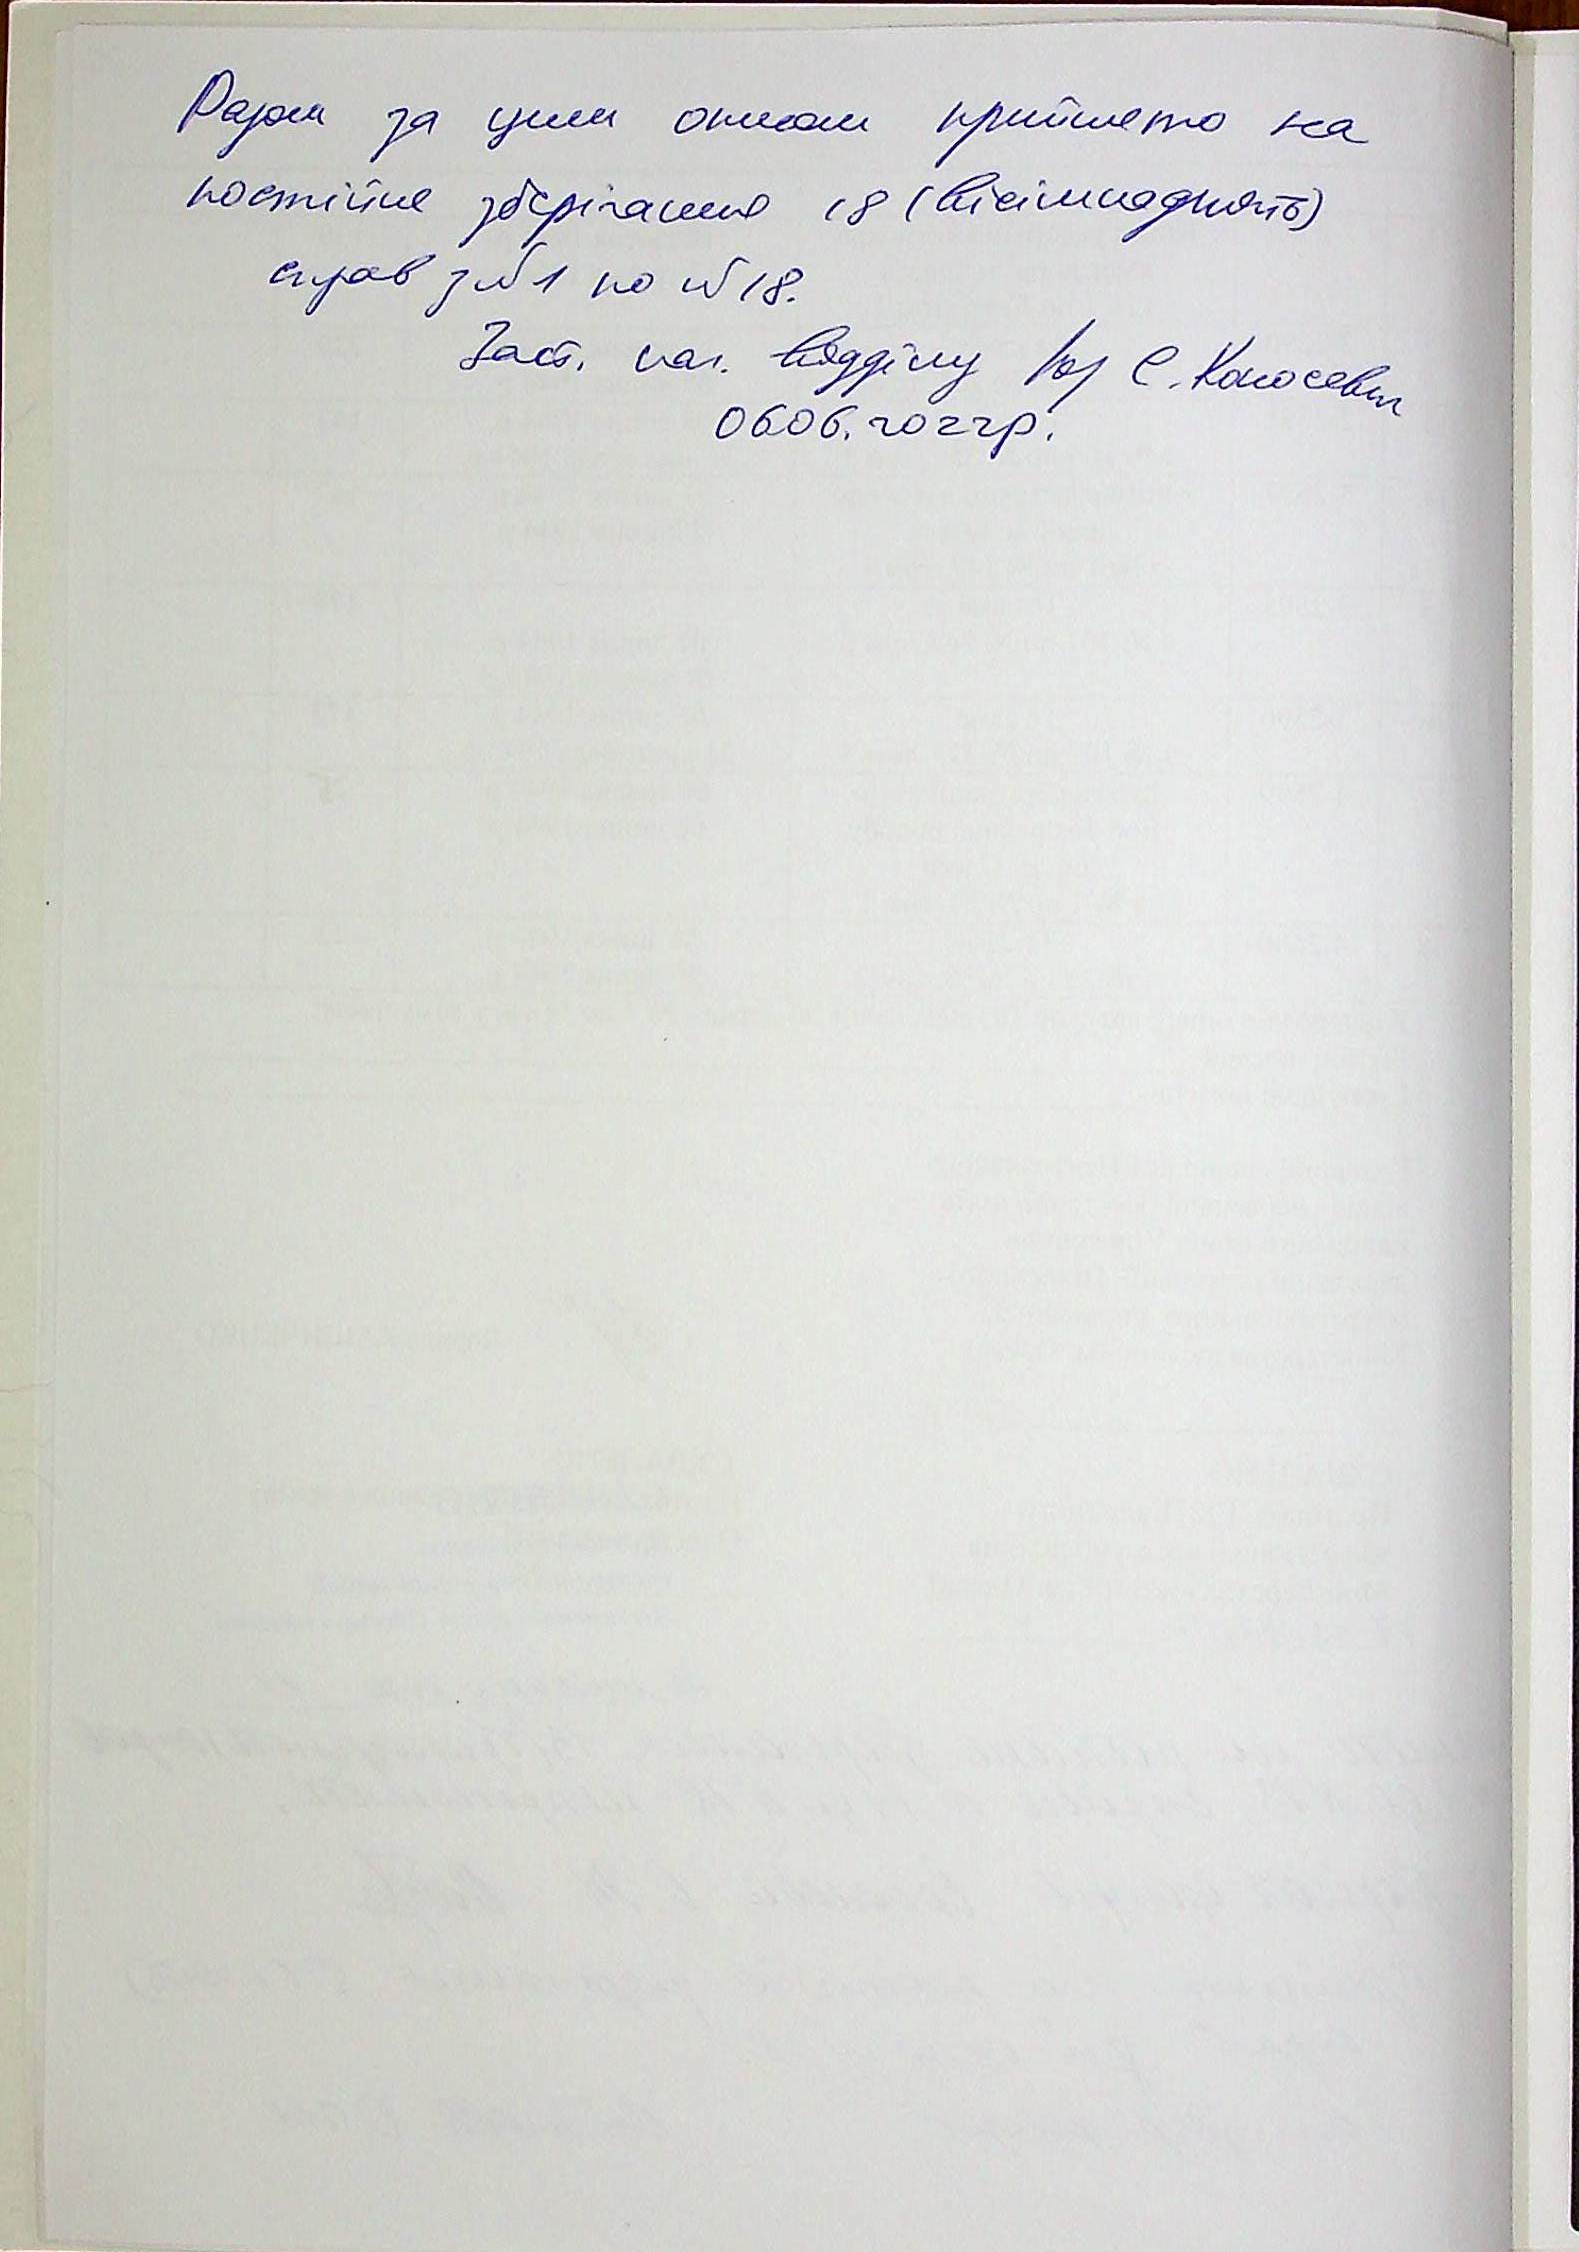 Разом за цим описом прийнято на
постійне зберігання 18 (вісімнадцять)
справ з №1 по №18.
Заст. нач. відділу С. Коносевич
06.06.2022р.